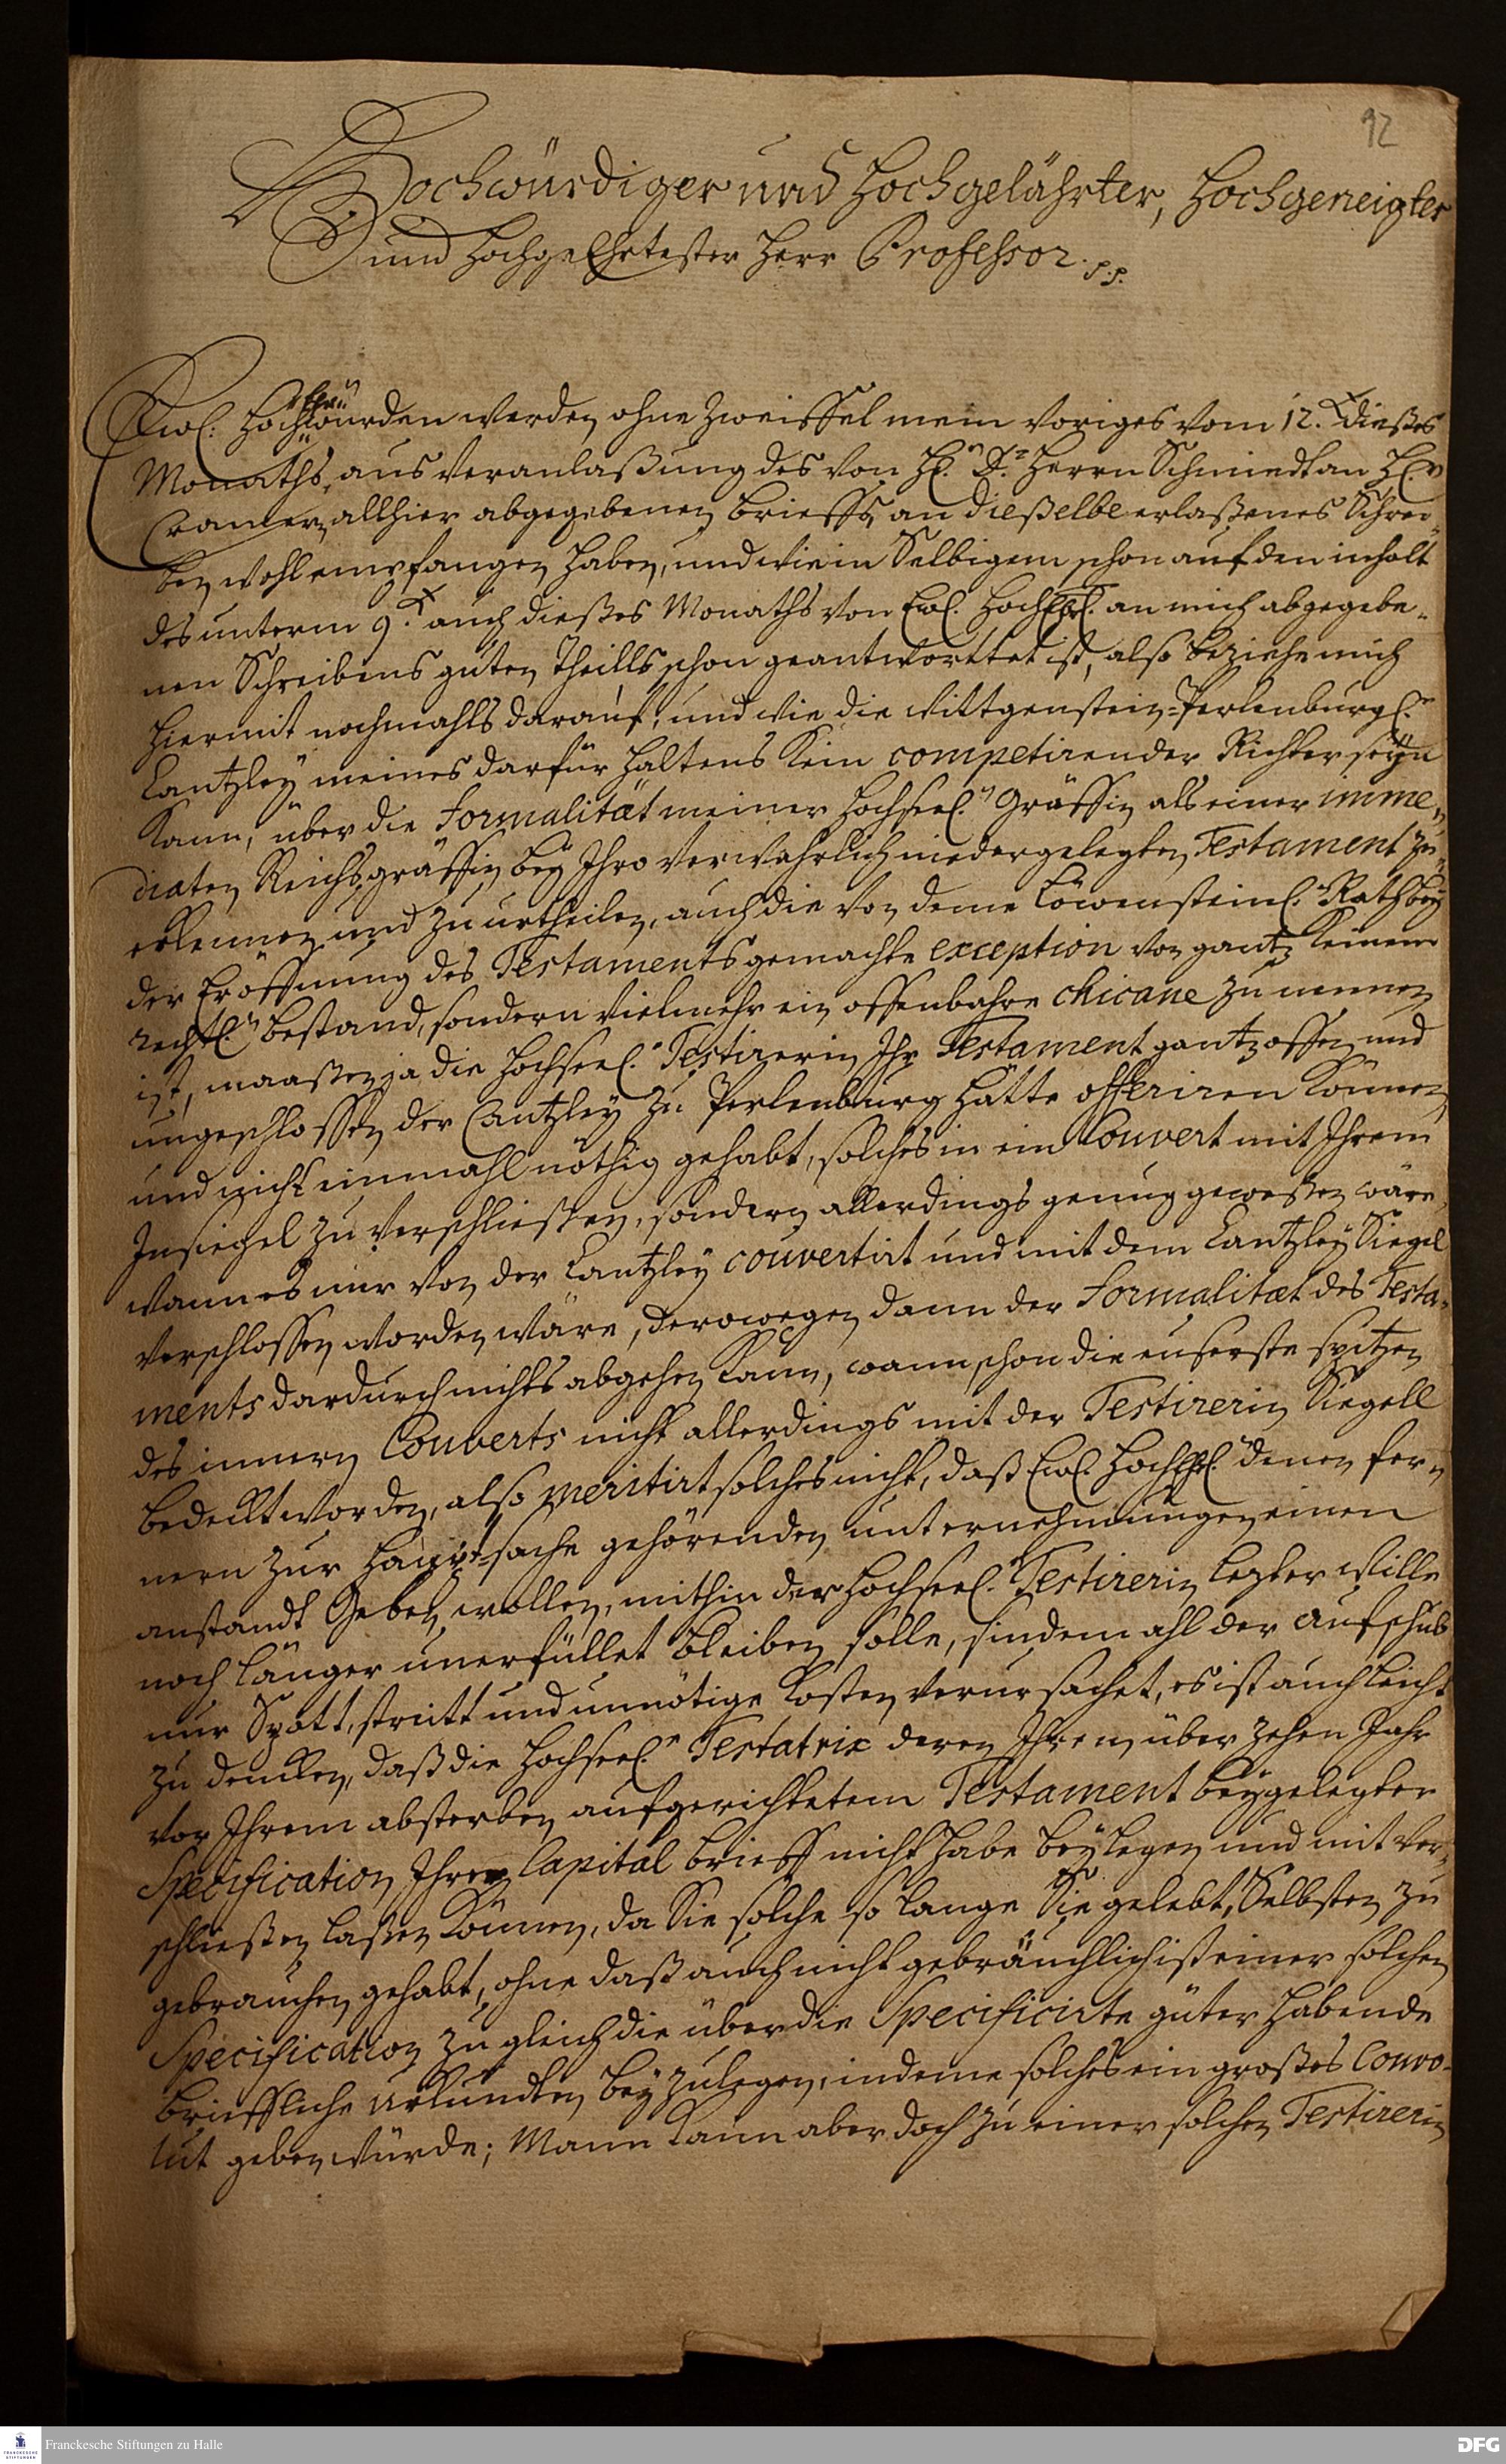 92
Hochwürdiger und Hochgelährter, Hochgeneigter
und Hochgeehrtester Herr Professor. p. p.
Ewl: Hochwürden werden ohne Zweiffel mein voriges vom 12.ten dießes
Monaths, aus Veranlaßung des von H.n D.r Herrn Schmiedt an H.n
Cramer, allhier abgegebenen brieffs, an dießelbe erlaßenes Schrei-
ben wohl empfangen haben, und wie in Selbigem schon auf den inhalt
des unterm 9.ten auch dießes Monaths von Ewl. Hoch an mich abgegebe-
nen Schreibens guten theills schon geantworttet ist, also beziehe mich
hiermit nochmahls darauf; und wie die Wittgenstein-Berlenburgl.e
Cantzley meines darfür haltens kein competirender Richter seyn
kann, über die Formalität meiner hochseel.n Gräffin als einer imme-
diaten Reichsgräffin bey Ihro verwahrlich niedergelegten Testament zu
erkennen und zu urtheilen, auch die von deme Löwensteinl.n Rath bey
der Eröffnung des Testaments gemachte exception von gantz keinem
rechtl.n bestand, sondern vielmehr ein offenbahre chicane zu nennen
ist, maaßen ja die hochseel.e Testirerin Ihr Testament gantz offen und
ungeschlossen der Cantzley zu Berlenburg hätte offeriren können
und nicht einmahl nöthig gehabt, solches in ein Couvert mit Ihrem
Insiegel zu verschließen, sondern allerdings genug geweßen wäre,
wann es nur von der Cantzley couvertirt und mit dem Cantzley Siegel
verschlossen worden wäre, derowegen dann der Formalitæt des Testa-
ments dardurch nichts abgehen kann, wann schon die euserste spitzen
des innern Couverts nicht allerdings mit der Testirerin Siegell
bedeckt worden, also meritirt solches nicht, daß Ewl. Hoch denen fer-
nern zur haupt-sache gehörenden unternehmungen einen
anstandt geben wollen, mithin der hochseel.n Testirerin lezter wille
noch länger unerfüllet bleiben solle, sindemahl der aufschub
nur Spott, streitt und unnötige Kosten verursachet, es ist auch leicht
zu dencken, daß die hochseel.e Testatrix deren Ihrem über zehen Jahr
vor Ihrem absterben aufgerichtetem Testament beygelegter
Specification, Ihre Capital brieff nicht habe beylegen und mit ver-
schließen laßen können, da Sie solche so lange Sie gelebt, Selbsten zu
gebrauchen gehabt, ohne daß auch nicht gebräuchlich ist einer solchen
Specification zugleich die über die Specificirte güter habende
brieffliche urkundten beyzulegen, indeme solches ein großes Convo-
lut geben würde; Mann kann aber doch zu einer solchen Testirerin
Franckesche Stiftungen zu Halle
DFG